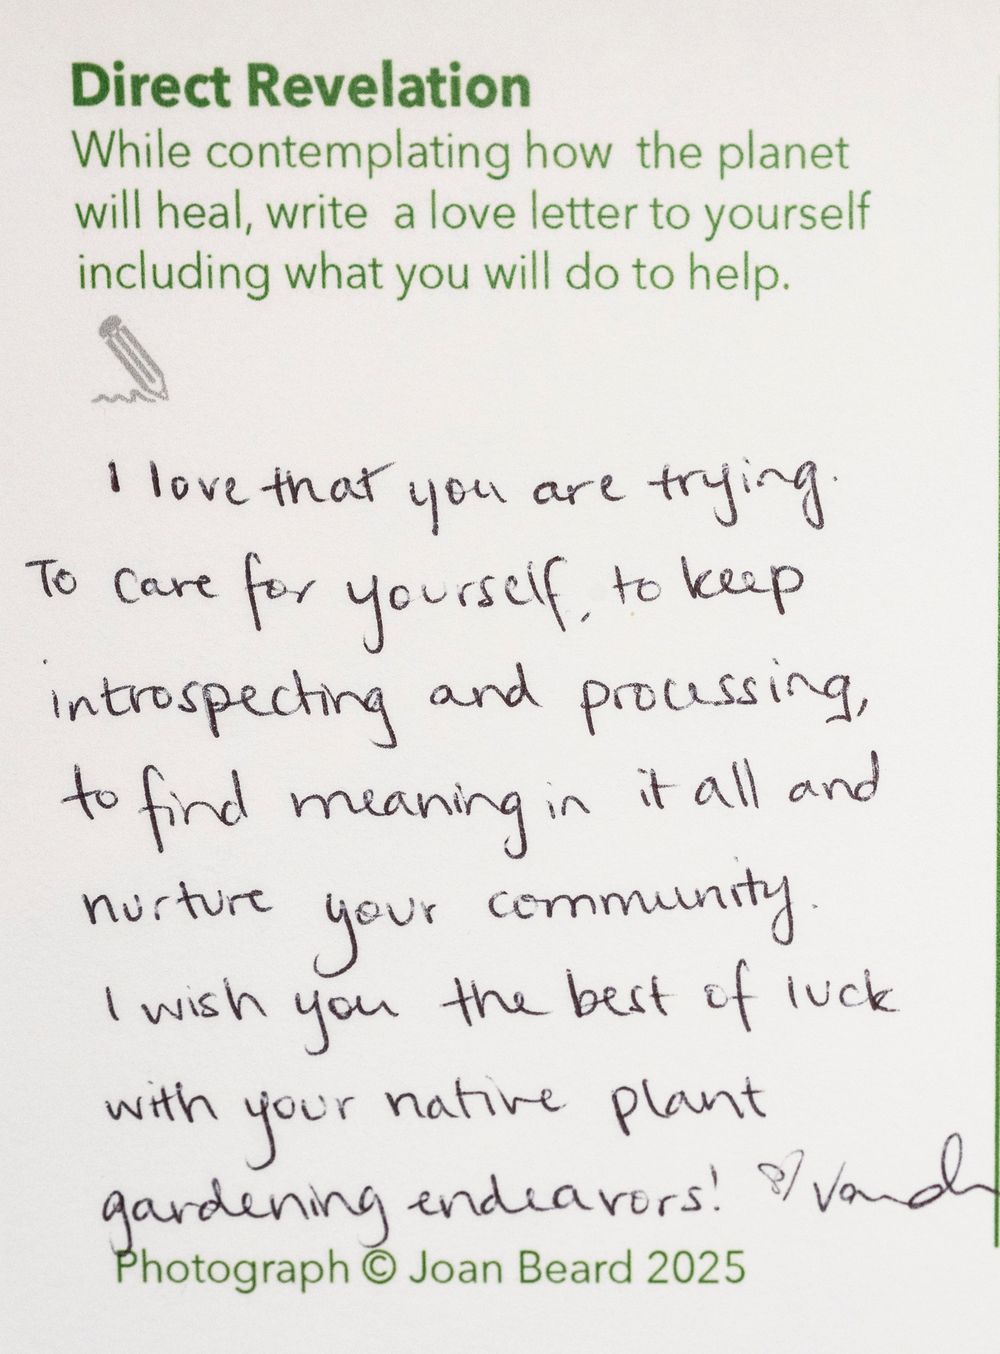 Direct Revelation
While contemplating how the planet
will heal, write a love letter to yourself
including what you will do to help.
I love that you are trying.
To care for yourself, to keep
introspecting and processing,
to find meaning in it all and
nurture your community.
I wish you the best of luck
with your native plant
gardening endeavors!
Photograph © Joan Beard 2025